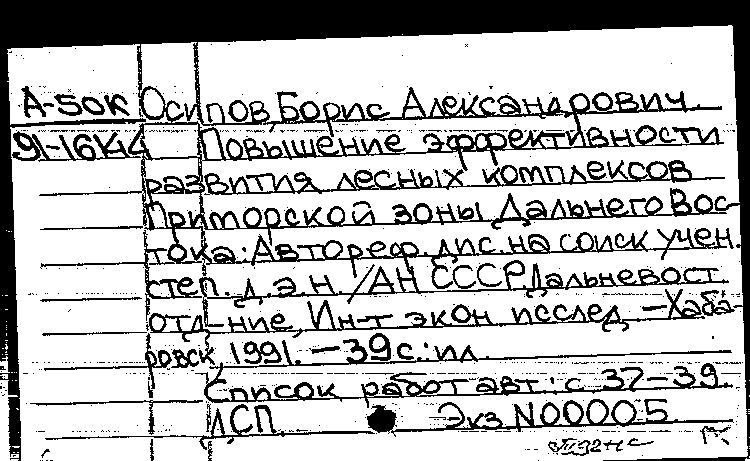 А-50к Осипов, Борис Александрович.
91-16144 Повышение эффективности
развития лесных комплексов
Приморской зоны Дальнего Вос-
тока: Автореф. дис. на соиск учен.
степ. д.э.н. /АН СССР, Дальневост.
отд-ние, Ин-т экон исслед. -Хаба-
ровск, 1991. -39с.: ил.
Список работ авт.: с 37-39.
ДСП Экз N00005